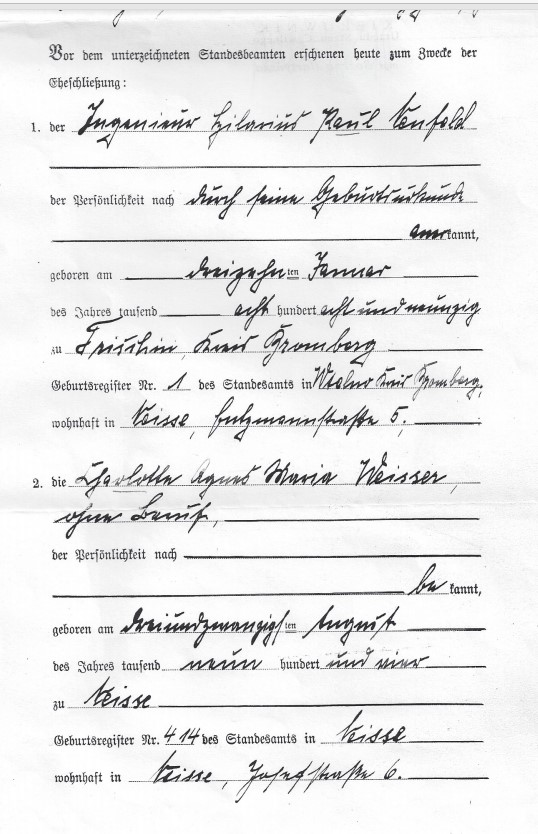 Vor dem unterzeichneten Standesbeamten erschienen heute zum Zwecke der
Eheschließung:
1. der Ingenieur Hilarius Paul
der Persönlichkeit nach durch seine Geburtsurkunde
anerkannt,
geboren am dreizehnten Januar
des Jahres tausend acht hundert acht und neunzig
zu Kreis Bromberg
Geburtsregister Nr. 1 des Standesamts in Kreis Bromberg,
wohnhaft in Neisse, 5.
2. die Charlotte Agnes Maria Weisser,
ohne Beruf,
der Persönlichkeit nach
be kannt,
geboren am dreiundzwanzigsten August
des Jahres tausend neun hundert und vier
zu Neisse
Geburtsregister Nr. 414 des Standesamts in Neisse
wohnhaft in Neisse, Josefstraße 6.